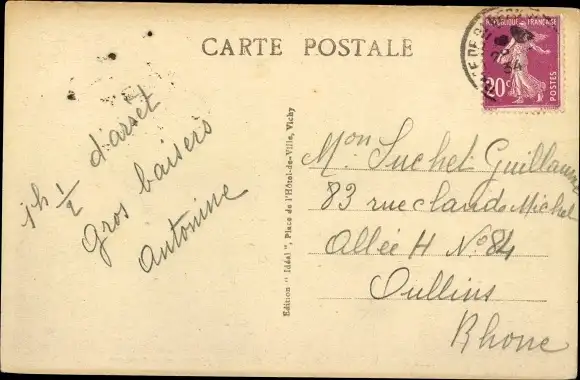 CARTE POSTALE
RÉPUBLIQUE FRANÇAISE
20c
POSTES
1h ½ d'arrêt
gros baisers
Antonine
Edition "Idéal", Place de l'Hôtel-de-Ville, Vichy
Mon Suchet Guillaume
83 rue claude Michel
Allée H No 84
Oullins
Rhone